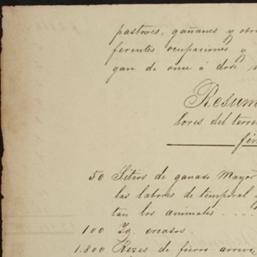 pastores, gañanes y otro
ferentes ocupaciones y
gan de once á doce
Resum
lores del terre
fin
50 Sitios de ganado Mayor
las labores de temporal y
tan los animales ....
100 Id. escasos.
1.800 Reses de fierro arriva,